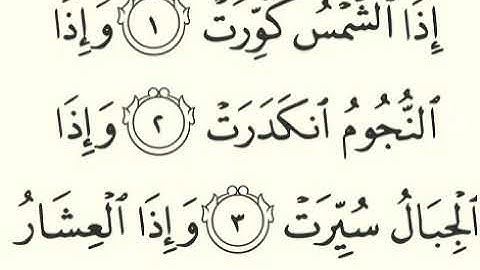 إِذَا ٱلشَّمْسُ كُوِّرَتْ ١ وَإِذَا
ٱلنُّجُومُ ٱنكَدَرَتْ ٢ وَإِذَا
ٱلْجِبَالُ سُيِّرَتْ ٣ وَإِذَا ٱلْعِشَارُ